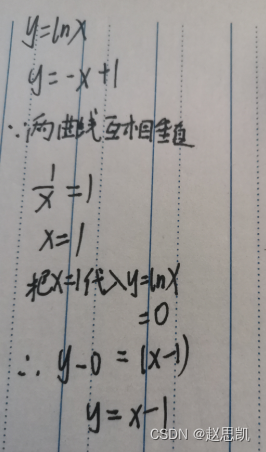 y=lnx
y=-x+1
∵两曲线互相垂直
1/x=1
x=1
把x=1代入y=lnx
=0
∴ y-0=(x-1)
y=x-1
CSDN @赵思凯